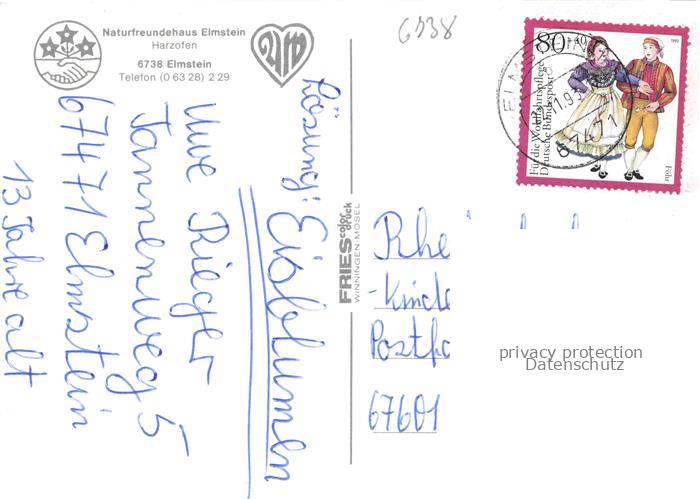 Naturfreundehaus Elmstein
Harzofen
6738 Elmstein
Telefon (0 63 28) 2 29
6738
Lösung: Eisblumen
Uwe Rieger
Tannenweg 5
67471 Elmstein
13 Jahre alt
FRIES color druck
WINNINGEN-MOSEL
80+40
1993
Für die Wohlfahrtspflege
Deutsche Bundespost
Föhr
67471
Rhe
-Kinde
Postfa
67601
privacy protection
Datenschutz